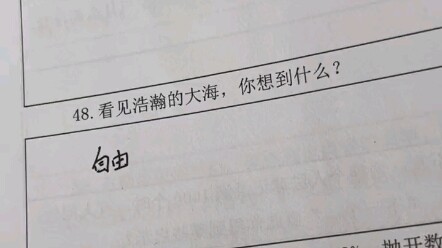 48.看见浩瀚的大海，你想到什么？
自由
抛开数